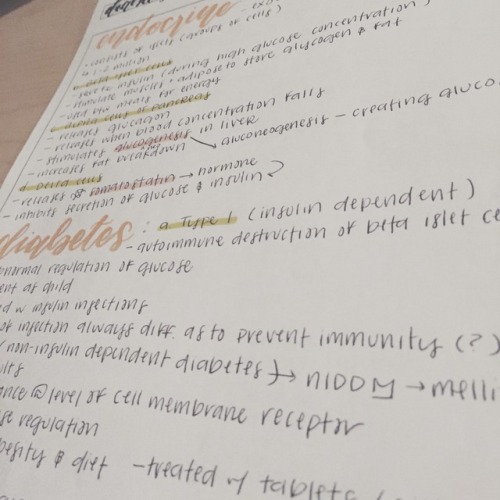 endocrine - ex
islets (groups of cells)
1-2 million
beta islet cells
- secrete insulin (during high glucose concentration)
- stimulate muscles + adipose to store glycogen & fat
- used btw meals for energy
alpha cells of pancreas
- releases glucagon
- releases when blood concentration falls
- stimulates glucogenesis in liver
- increases fat breakdown → gluconeogenesis - creating gluco
delta cells
- releases somatostatin → hormone
- inhibits secretion of glucose & insulin?
diabetes: a Type 1 (insulin dependent)
- autoimmune destruction of beta islet ce
normal regulation of glucose
ent as child
ed w insulin injections
of injection always diff. as to prevent immunity (?)
non-insulin dependent diabetes) → NIDDM → melli
ults
ance @ level of cell membrane receptor
se regulation
besity & diet - treated w/ tablets